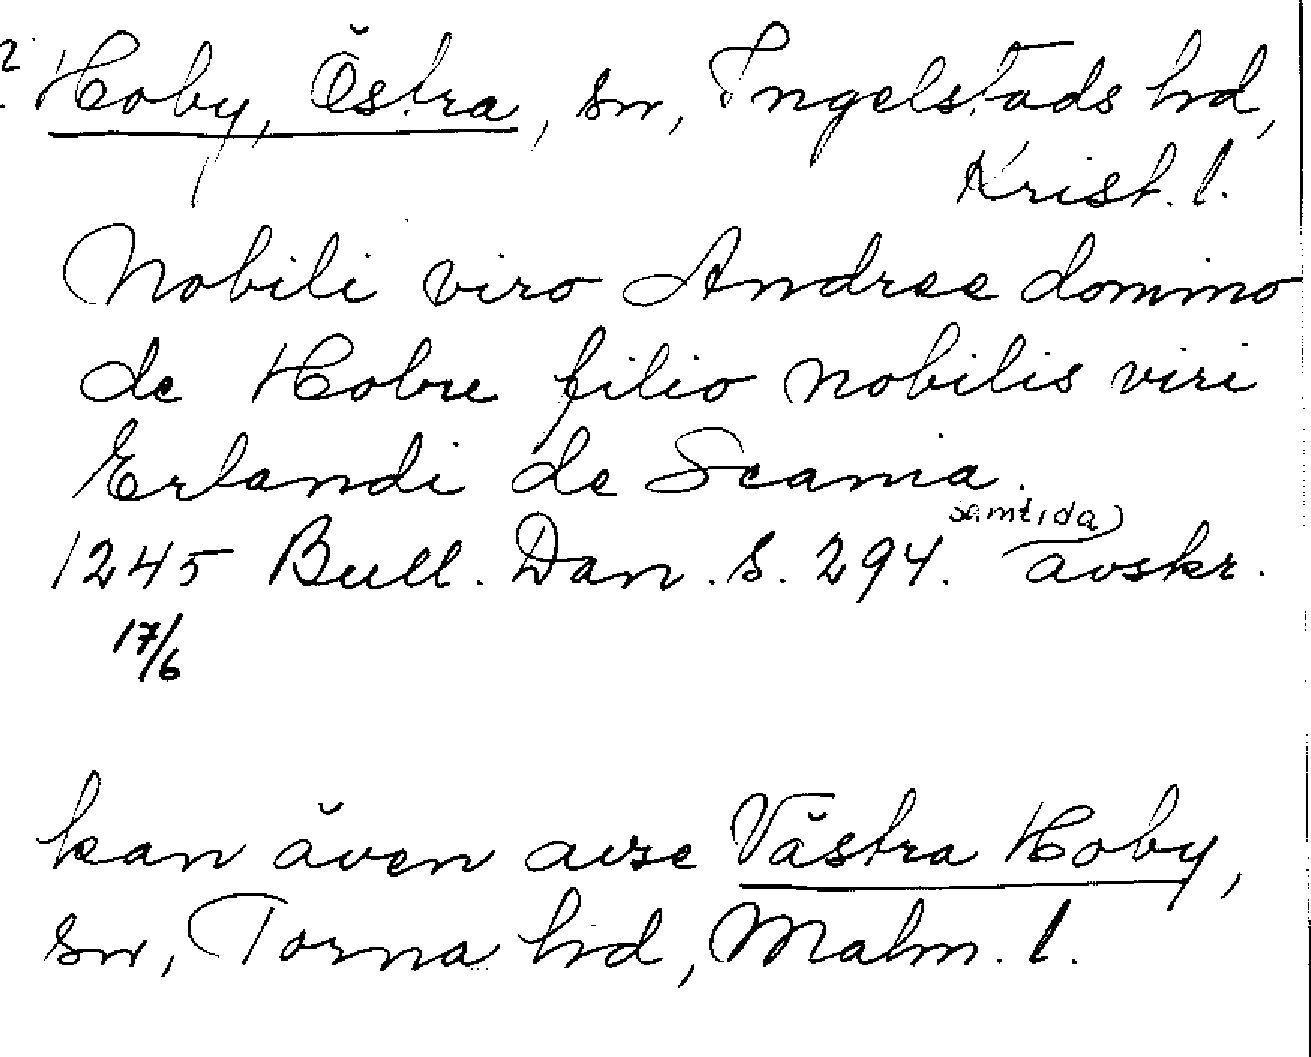 Hoby, Östra, sn, Ingelstads hd,
Krist. l.
Nobili viro Andree domino
de Hobre filio nobilis viri
Erlandi de Scania.
samtida
1245 Bull. Dan. S. 294. avskr.
17/6
kan även avse Västra Hoby,
sn, Torna hd, Malm. l.